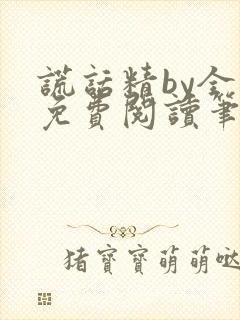 謊話精by全
免費閱讀筆
猪寶寶萌萌噠